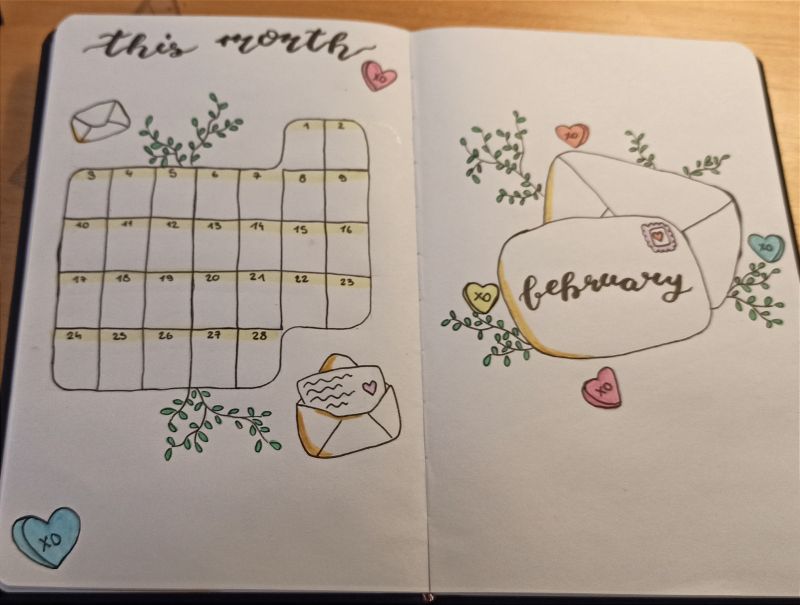 this month
XO
1 2
3 4 5 6 7 8 9
10 11 12 13 14 15 16
17 18 19 20 21 22 23
24 25 26 27 28
XO
XO
XO
february
XO
XO